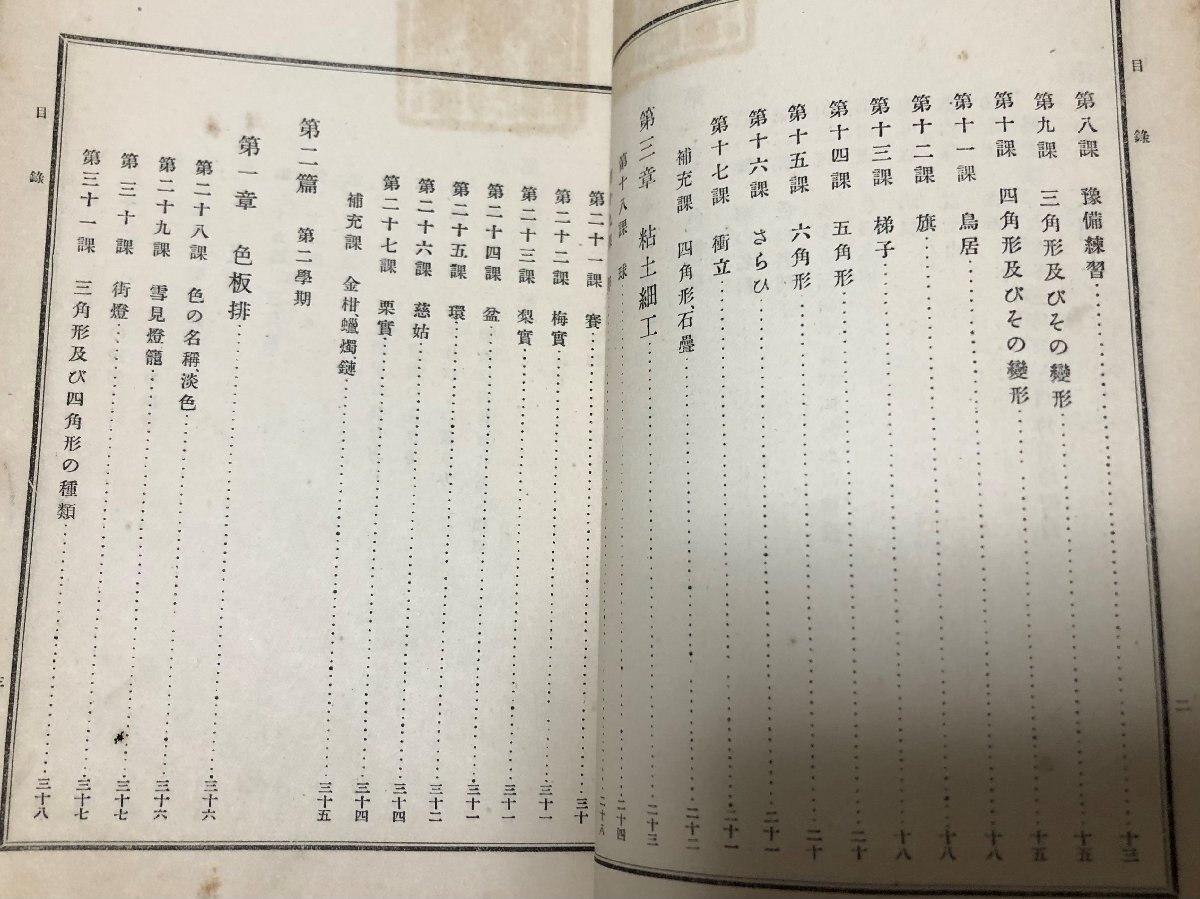 目錄
第八課 豫備練習……十三
第九課 三角形及びその變形……十五
第十課 四角形及びその變形……十五
第十一課 鳥居……十八
第十二課 旗……十八
第十三課 梯子……十八
第十四課 五角形……二十
第十五課 六角形……二十
第十六課 さらひ……二十一
第十七課 衝立……二十一
補充課 四角形、石疊……二十二
第三章 粘土細工……二十三
第十八課 球……二十四
二
第二十一課 賽……三十
第二十二課 梅實……三十一
第二十三課 梨實……三十一
第二十四課 盆……三十一
第二十五課 環……三十二
第二十六課 慈姑……三十四
第二十七課 栗實……三十四
補充課 金柑、蠟燭、鏈……三十五
第二篇 第二學期
第一章 色板排……三十六
第二十八課 色の名稱、淡色……三十六
第二十九課 雪見燈籠……三十七
第三十課 街燈……三十七
第三十一課 三角形及び四角形の種類……三十八
目錄
三